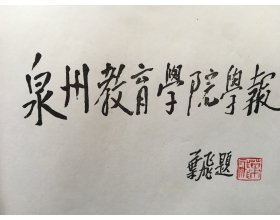 泉州教育學院學報
葉飛題